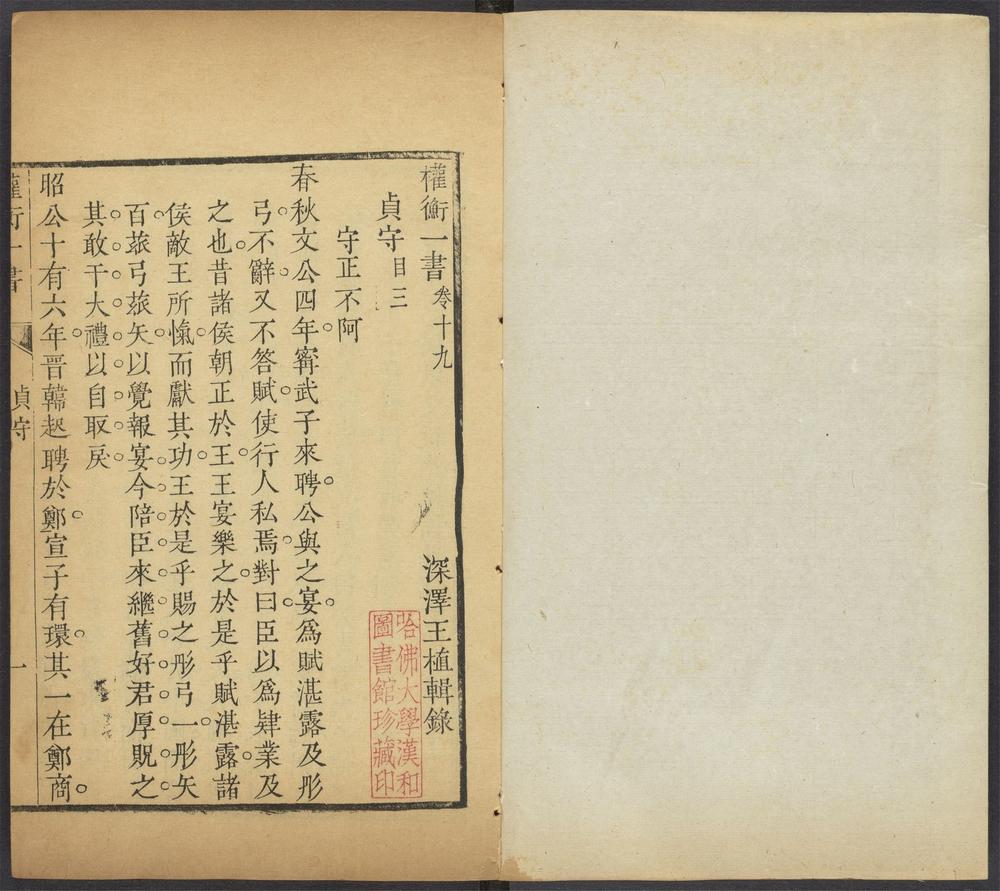 權衡一書卷十九
深澤王植輯錄
哈佛大學漢和
圖書館珍藏印
貞守目三
守正不阿
春秋文公四年甯武子來聘公與之宴爲賦湛露及彤
弓不辭又不答賦使行人私焉對曰臣以爲肄業及
之也昔諸侯朝正於王王宴樂之於是乎賦湛露諸
侯敵王所愾而獻其功王於是乎賜之彤弓一彤矢
百玈弓玈矢以覺報宴今陪臣來繼舊好君厚貺之
其敢干大禮以自取戾
昭公十有六年晉韓起聘於鄭宣子有環其一在鄭商
權衡一書
貞守
一